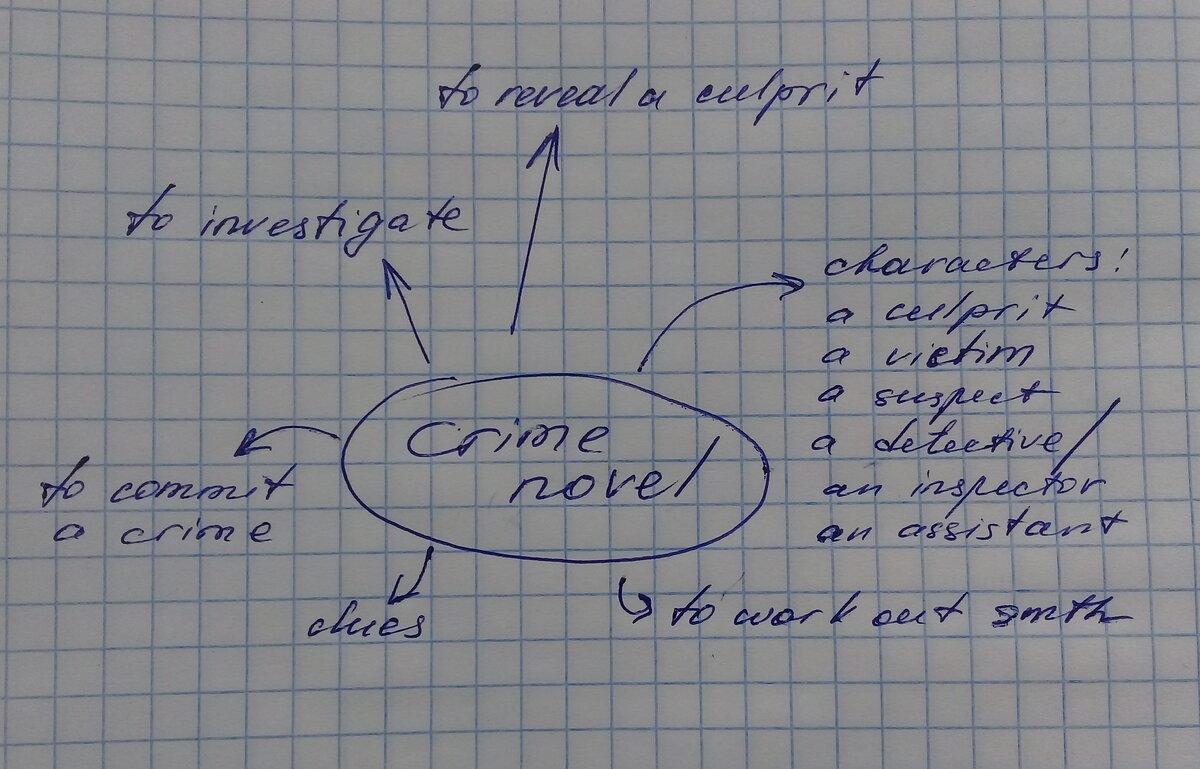 to reveal a culprit
to investigate
characters:
a culprit
a victim
a suspect
a detective/
an inspector
an assistant
Crime
novel
to commit
a crime
clues
to work out smth